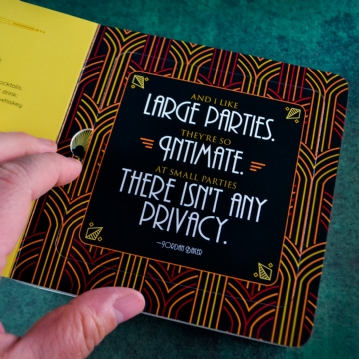 cocktails,
drink.
whiskey
AND I LIKE
LARGE PARTIES.
THEY'RE SO
INTIMATE.
AT SMALL PARTIES
THERE ISN'T ANY
PRIVACY.
—JORDAN BAKER